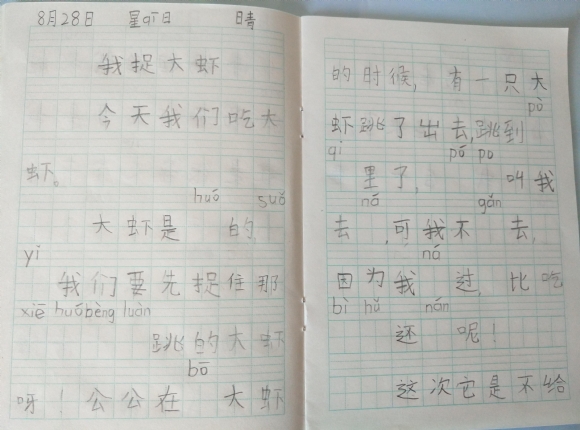 8月28日 星qī日 晴
我捉大虾
今天我们吃大
虾。
huó suǒ
大虾是 的,
yǐ
我们要先捉住那
xiē huó bèng luàn
跳的大虾
bō
呀！公公在 大虾
的时候，有一只大
pò
虾跳了出去，跳到
qì pō po
里了， 叫我
ná gǎn
去 ，可我不 去，
ná
因为我 过，比吃
bì hǔ nán
还 呢！
这次它是不给